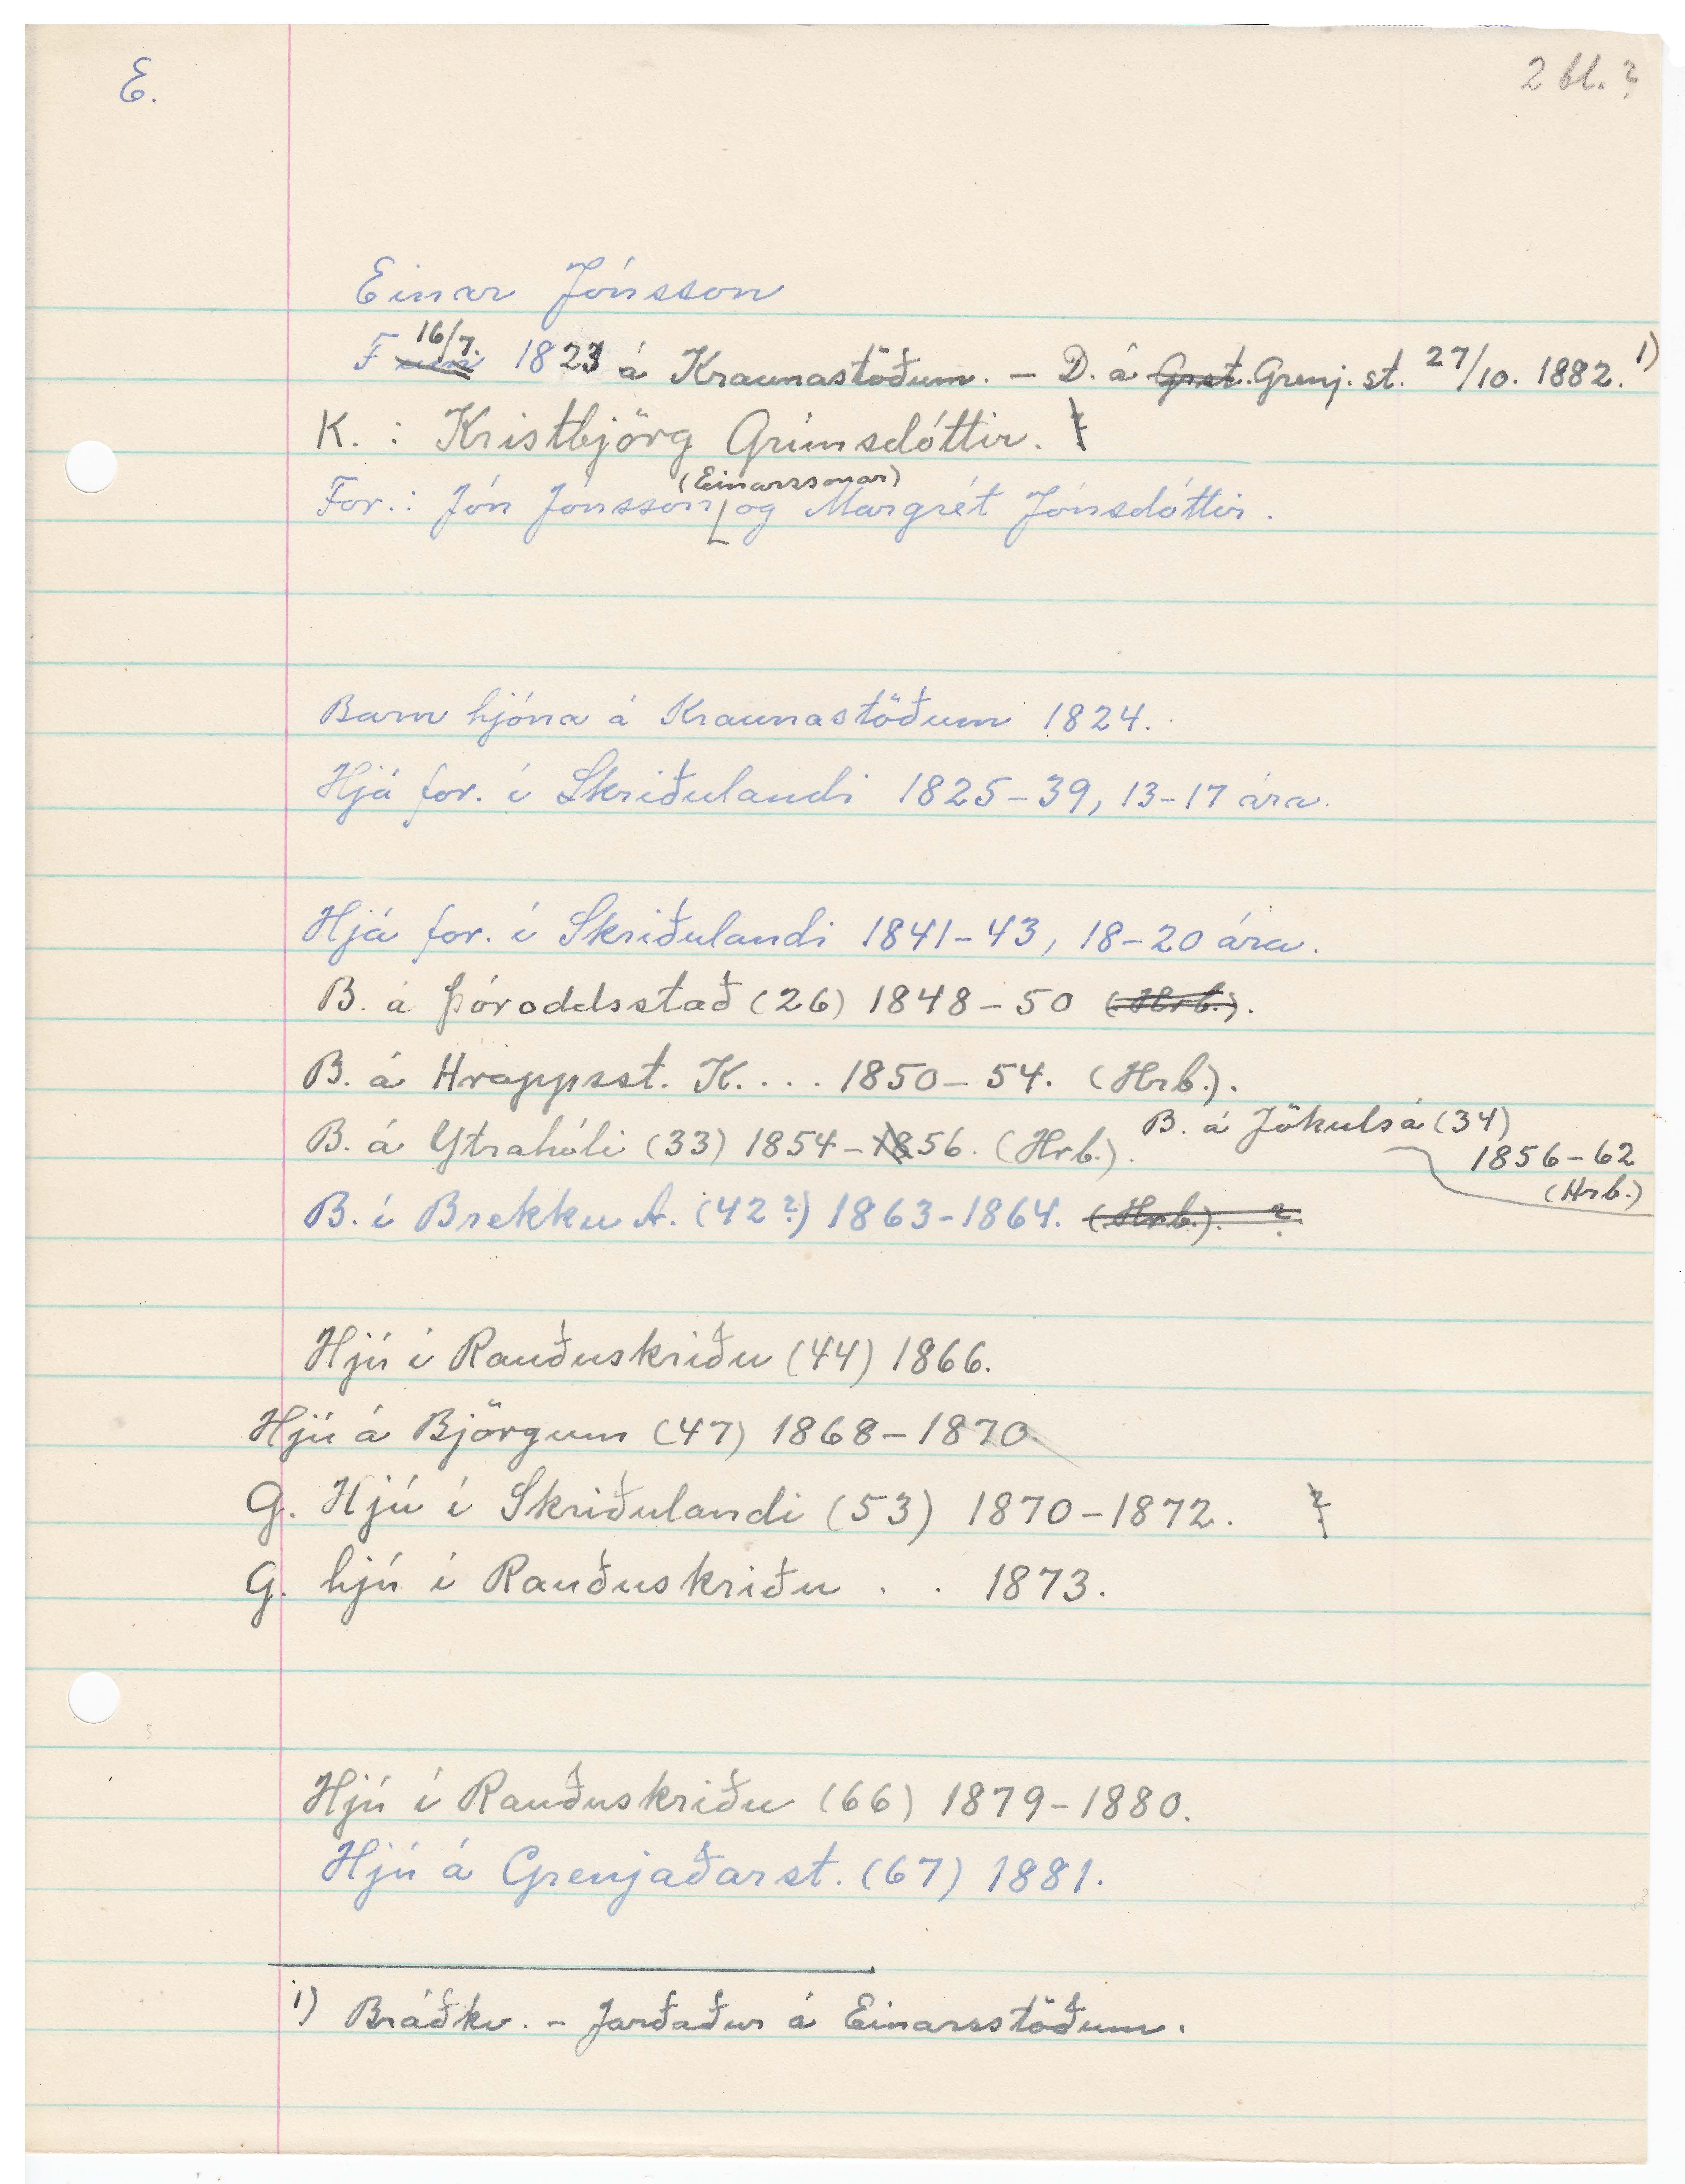 E.
2 bl. ?
Einar Jónsson
F 16/7. 1823 á Kraunastöðum. - D. á Grenj. st. 27/10. 1882. 1)
K. : Kristbjörg Grímsdóttir.
(Einarssonar)
For. : Jón Jónsson og Margrét Jónsdóttir.
Barn hjóna á Kraunastöðum 1824.
Hjá for. í Skriðulandi 1825-39, 13-17 ára.
Hjá for. í Skriðulandi 1841-43, 18-20 ára.
B. á Þóroddsstað (26) 1848-50 (Hrb.).
B. á Hrappsst. K. . . . 1850-54. (Hrb.).
B. á Ytrahóli (33) 1854-1856. (Hrb.).
B. á Jökulsá (34)
1856-62
(Hrb.)
B. í Brekku A. (42?) 1863-1864. (Hrb.). ?
Hjú í Rauðuskriðu (44) 1866.
Hjú á Björgum (47) 1868-1870.
G. Hjú í Skriðulandi (53) 1870-1872. ?
G. hjú í Rauðuskriðu . . 1873.
Hjú í Rauðuskriðu (66) 1879-1880.
Hjú á Grenjaðarst. (67) 1881.
1) Bráðkv. - Jarðaður á Einarsstöðum.